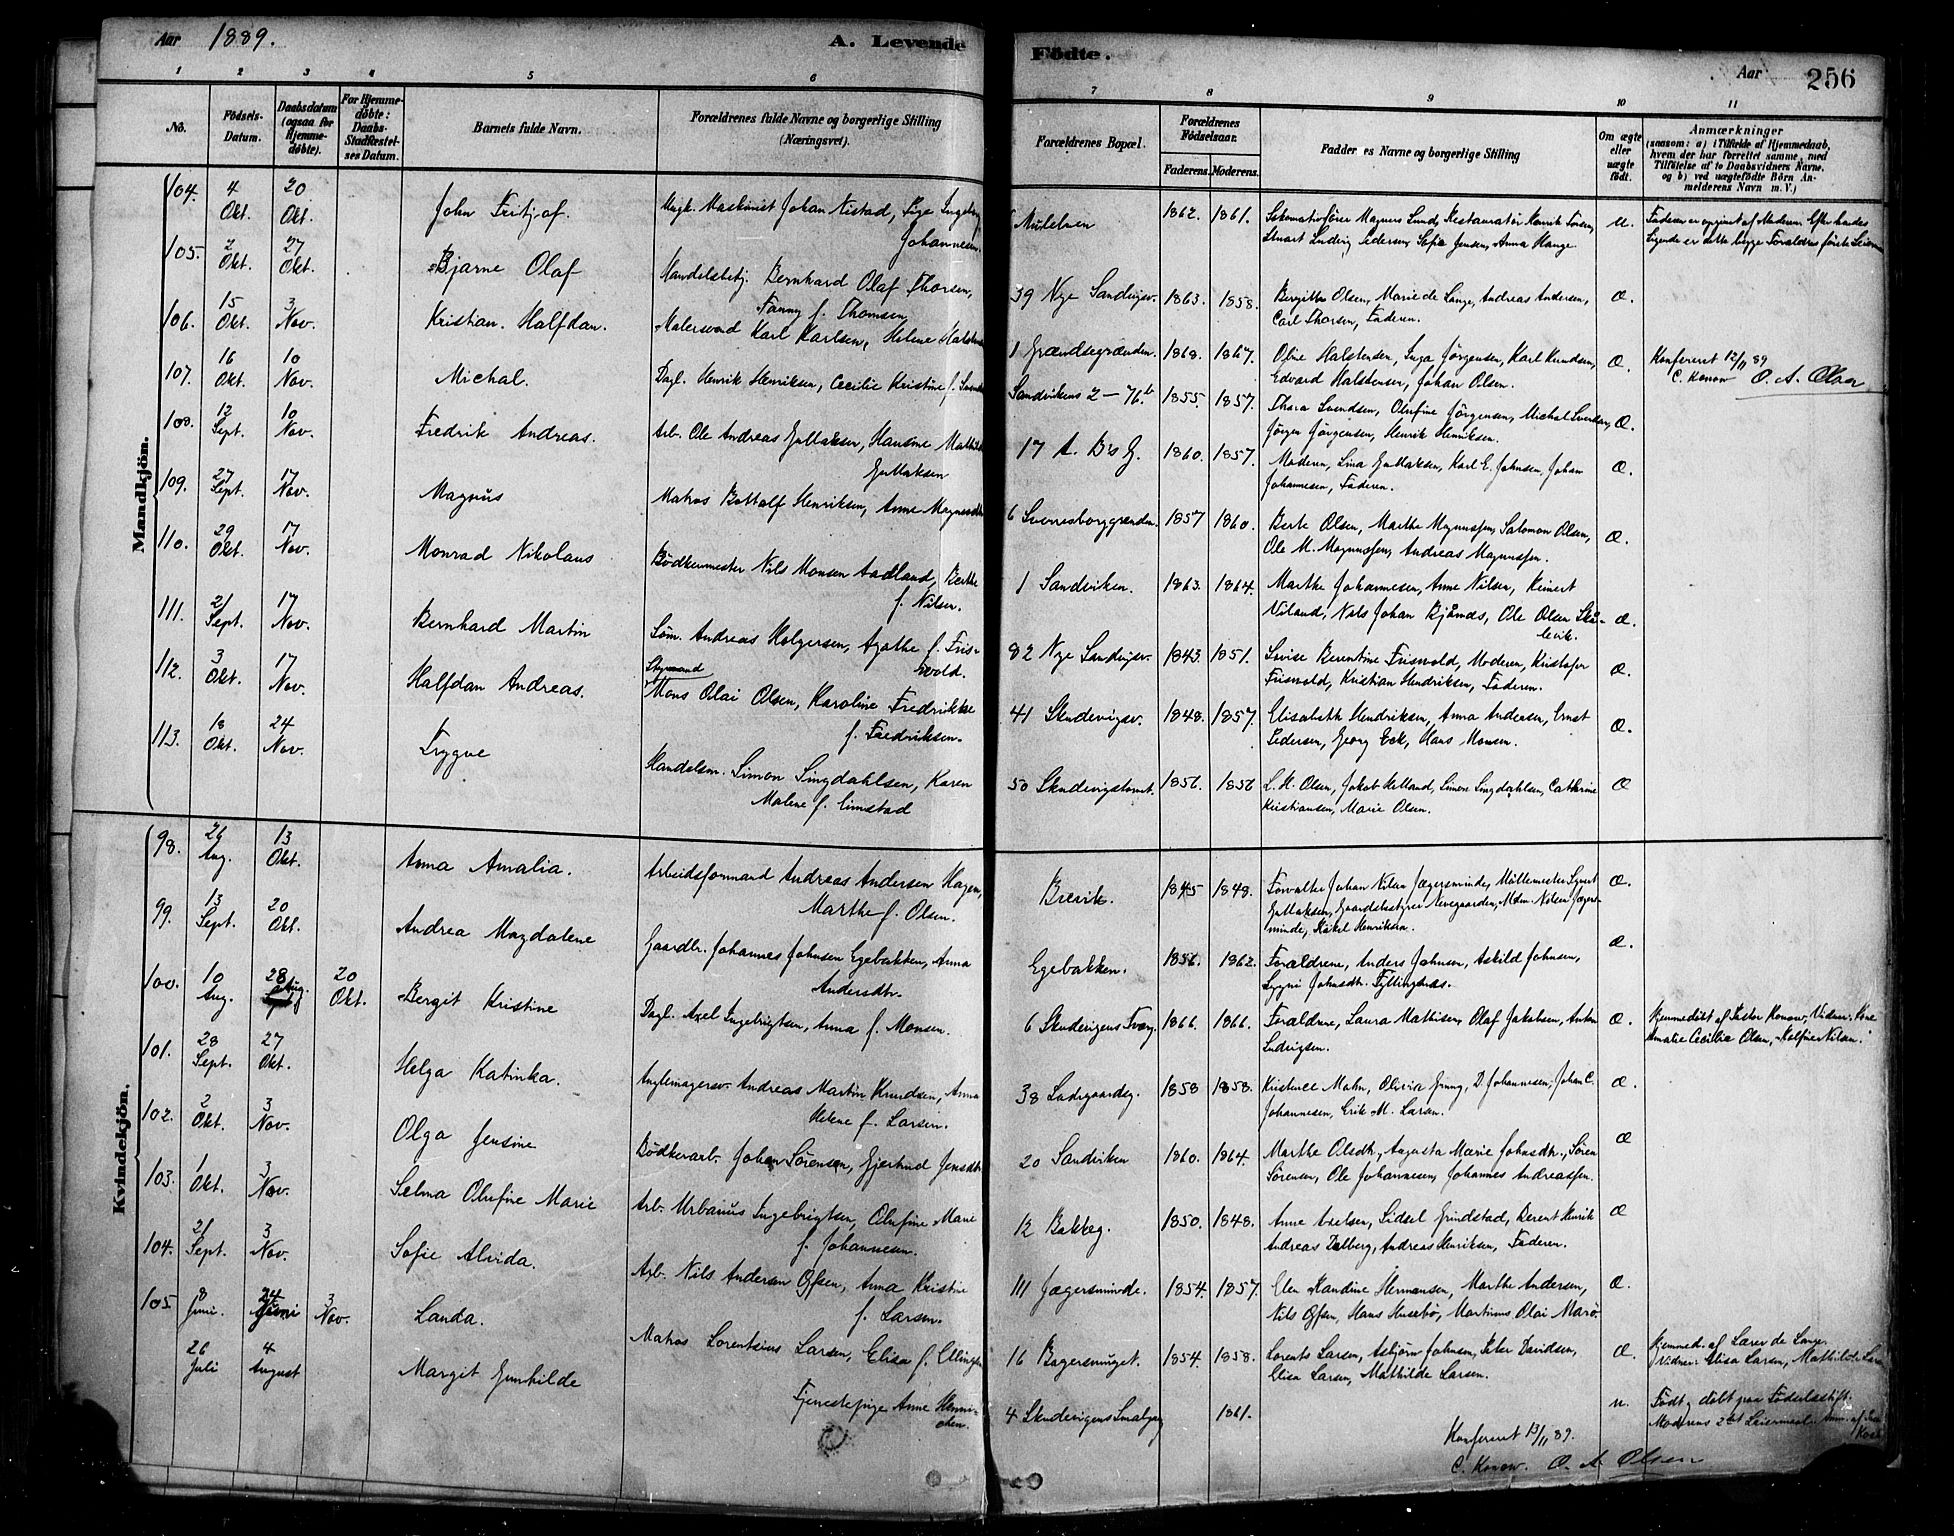 Aar 1889.
A. Levende
Födte.
Aar
256
1 2 3 4 5 6
7 8 9 10 11
No.
Fødsels-
Datum.
Daabsdatum
(ogsaa for
Hjemme-
døbte).
For Hjemme-
døbte:
Daabs-
Stadfæstel-
ses Datum.
Barnets fulde Navn.
Forældrenes fulde Navne og borgerlige Stilling
(Næringsvei).
Forældrenes Bopæl.
Forældrenes
Födselsaar.
Faderens. Moderens.
Faddernes Navne og borgerlige Stilling
Om ægte
eller
uægte
födt.
Anmærkninger
(saasom: a) i Tilfælde af Hjemmedaab,
hvem der har forrettet samme, med
Tilföielse af to Daabsvidners Navne,
og b) ved uægtefödte Börn An-
melderens Navn m. V.)
Mandkjön.
104. 4 Okt. 20 Okt. John Fritjof. Ungk. Maskinist Johan Nistad, Pige Ingeborg
Johannesen.
Mulelven 1862. 1861. Lokomotivfører Magnus Lund, Restauratør Henrik Sørensen,
Stuart Ludvig Pedersen, Sofie Jensen, Anna Hauge u.
Faderen er opgivet af Moderen. Efter hendes
Sigende er dette begge Forældres første Leiermaal
105. 2 Okt. 27 Okt. Bjarne Olaf Handelsbetj. Bernhard Olaf Thorsen,
Fanny f. Thomsen
39 Nye Sandvigsv. 1863. 1858. Bergitte Olsen, Marie de Lange, Andreas Andersen,
Carl Thorsen, Faderen. Æ.
106. 15 Okt. 3 Nov. Kristian Halfdan. Malersvend Karl Karlsen, Helene Halstensen
1 Grændsegrænden. 1868. 1867. Oline Halstensen, Inga Jørgensen, Karl Knudsen,
Edvard Halstensen, Johan Olsen. Æ.
Konfereret 12/11 89
C. Konow O. A. Olsen
107. 16 Okt. 10 Nov. Michal. Dagl. Henrik Henriksen, Cecilie Kristine f. Svendsen
Sandvikens 2 – 76b 1855. 1857. Thora Svendsen, Olufine Jørgensen, Michal Svendsen,
Jørgen Jørgensen, Henrik Henriksen. Æ.
108. 12 Sept. 10 Nov. Fredrik Andreas. Arb. Ole Andreas Gullaksen, Hansine Mathilde
Gullaksen
17 A. B's G. 1860. 1857. Moderen, Lina Gullaksen, Karl E. Johnsen, Johan
Johannesen, Faderen. Æ.
109. 27 Sept. 17 Nov. Magnus Matros Bottolf Henriksen, Anne Magnusdtr
6 Sverresborggrænden 1857 1860. Berte Olsen, Marthe Magnussen, Salomon Olsen,
Ole M. Magnussen, Andreas Magnussen. Æ.
110. 29 Okt. 17 Nov. Monrad Nikolaus Bødkermester Nils Monsen Aadland, Berthe
f. Nilsen.
1 Sandviken. 1863. 1864. Marthe Johannesen, Anne Nilsen, Reinert
Viland, Nils Johan Bjånæs, Ole Olsen Skå-
levik. Æ.
111. 21 Sept. 17 Nov. Bernhard Martin Søm. Andreas Holgersen, Agathe f. Fris-
vold.
82 Nye Sandvigsv. 1843. 1851. Lovise Berentine Frisvold, Moderen, Kristofer
Frisvold, Kristian Hendriksen, Faderen. Æ.
112. 3 Okt. 17 Nov. Halfdan Andreas. Styrmand Mons Olai Olsen, Karoline Fredrikke
f. Fredriksen.
41 Skudevigsv. 1848. 1857. Elisabeth Hendriksen, Anna Andersen, Ernst
Pedersen, Georg Eck, Hans Monsen. Æ.
113. 18 Okt. 24 Nov. Trygve Handelsm. Simon Singdahlsen, Karen
Malene f. Eimstad
50 Skudevigstomt. 1856. 1856 L. H. Olsen, Jakob Helland, Simon Singdahlsen, Cathrine
Kristiansen, Marie Olsen. Æ
Kvindekjön.
98. 26 Aug. 13 Okt. Anna Amalia. Arbeidsformand Andreas Andersen Hagen,
Marthe f. Olsen.
Brevik. 1845 1848. Forvalter Johan Nilsen Jægersminde, Møllemester Sjurt
Gullaksen, Gaardsbestyrer Nevegaarden, Mdm. Nilsen Jægers-
minde, Rakel Henriksen. Æ.
99. 13 Sept. 20 Okt. Andrea Magdalene Gaardbr. Johannes Johnsen Egebakken, Anna
Andersdtr.
Egebakken. 1856. 1862. Forældrene, Anders Johnsen, Askild Johnsen,
Sygni Johnsdtr. Fyllingsnæs. Æ.
100. 10 Aug. 28 Aug. 20 Okt. Bergit Kristine Dagl. Axel Ingebrigtsen, Anna f. Monsen.
6 Skudevigens Tværg 1866. 1866. Forældrene, Laura Mathisen, Olaf Jakobsen, Anton
Ludvigsen. Æ.
Hjemmedøbt af Pastor Konow. Vidner:
Amalie Cecilia Olsen, Nilsen.
101. 28 Sept. 27 Okt. Helga Katinka. Anglemagersv. Andreas Martin Knudsen, Anna
Helene f. Larsen.
38 Ladegaardsg. 1858 1858. Kristence Mohn, Olivia Grung, D. Johannesen, Johan C.
Johannesen, Erik M. Larsen. Æ.
102. 2 Okt. 3 Nov. Olga Jensine Bødkerarb. Johan Sørensen, Gjertrud Jensdtr.
20 Sandviken 1860. 1864. Marthe Olsdtr., Augusta Marie Johnsdtr., Søren
Sørensen, Ole Johannesen, Johannes Andreassen. Æ
103. 1 Okt. 3 Nov. Selma Olufine Marie Arb. Urbanus Ingebrigtsen, Olufine Marie
f. Johannesen.
12 Bakkeg. 1850. 1848. Anne Axelsen, Sidsel Grindstad, Berent Henrik
Andreas Dalberg, Andreas Henriksen, Faderen. Æ
104. 21 Sept. 3 Nov. Sofie Alvida. Arb. Nils Andersen Ofsen, Anna Kristine
f. Larsen.
111 Jægersminde. 1854. 1857. Elen Randine Hermansen, Marthe Andersen,
Nils Ofsen, Hans Husebø, Martinus Olai Marø. Æ.
105. 8 Juni. 24 Juni 3 Nov. Landa. Matros Lorentsius Larsen, Elisa f. Ellingsen
16 Bagersmuget. 1854. 1858. Lorents Larsen, Asbjørn Johnsen, Peter Davidsen,
Elisa Larsen, Mathilde Larsen. Æ.
Hjemmed. af Lærer de Lange.
Vidner: Elisa Larsen, Mathilde Larsen
26 Juli 4 August Margit Gunhilde Tjenestepige Anne Henri-
chsen.
4 Skudevigens Smalgang 1861. u. Født og døbt paa Fødselsstift.
Moderens 2det Leiermaal. Anm. af
Konfereret 13/11 89.
C. Konow. O. A. Olsen